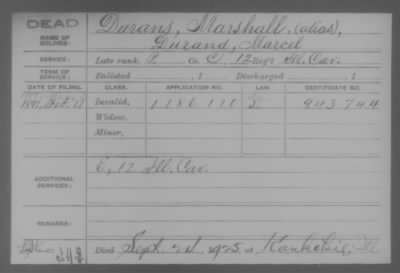 DEAD
NAME OF SOLDIER:
Durans, Marshall, (alias),
Durand, Marcel
SERVICE: Late rank, P. Co. C, 12 Reg't Ill. Cav.
TERM OF SERVICE: Enlisted , 1 Discharged , 1
DATE OF FILING. CLASS. APPLICATION NO. LAW. CERTIFICATE NO.
1897, Feb. Invalid, 1186110 943744
Widow,
Minor,
ADDITIONAL SERVICES:
E, 12 Ill. Cav.
REMARKS:
Died Sept. 1925, at Kankakee, Ill